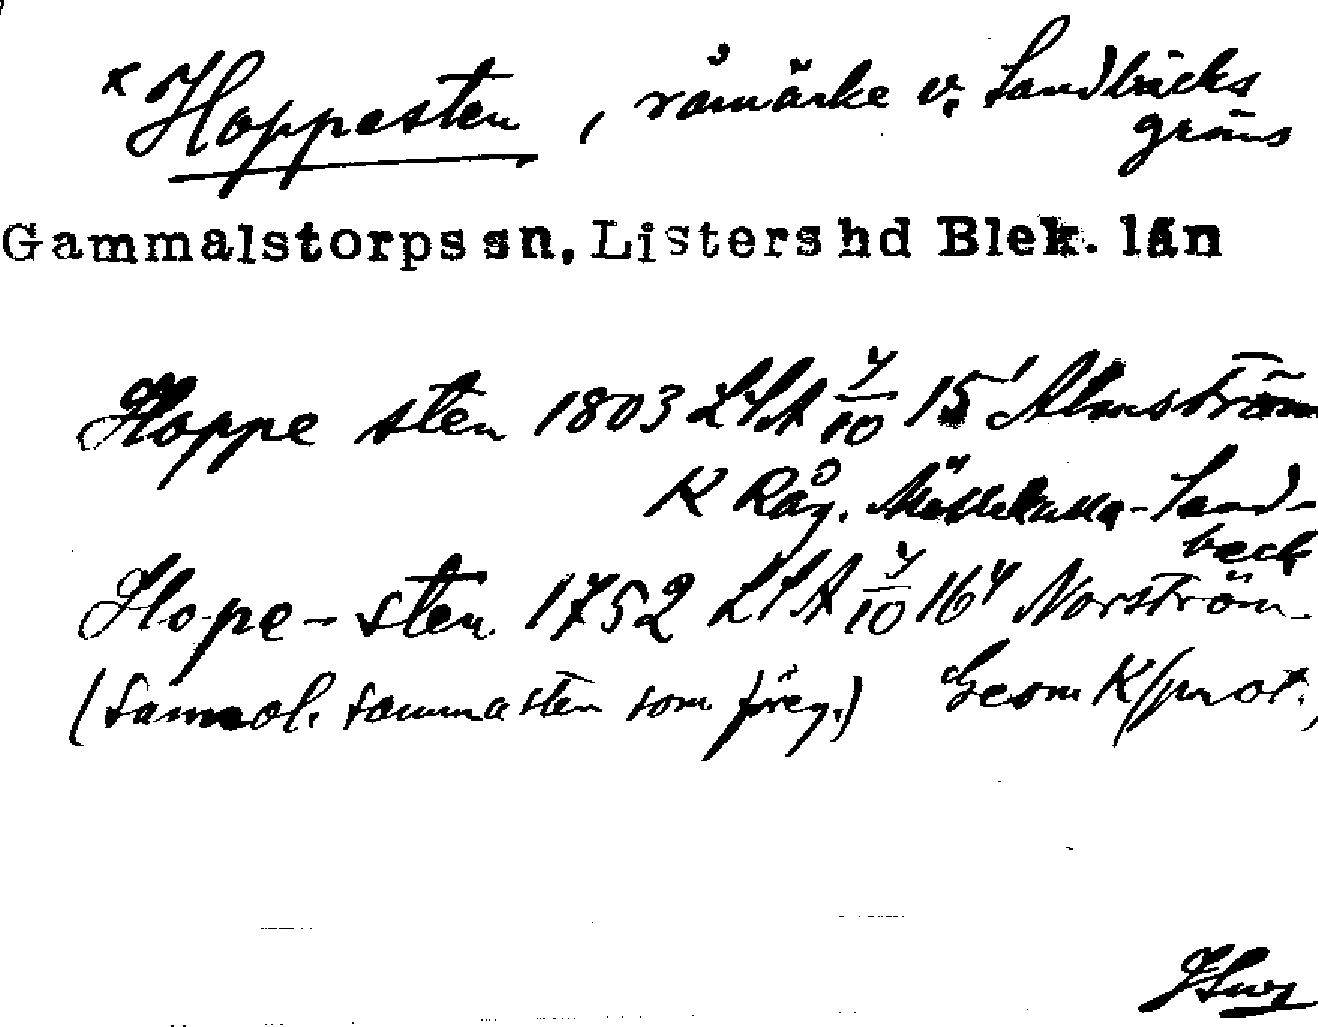 x Hoppesten, råmärke v. Sandbäcks
gräns
Gammalstorps sn, Listers hd Blek. län
Hoppe sten 1803 LSA 7/10 15' Almström
K Råg. Möllekulla-Sand-
beck
Hope-sten 1752 LSA 7/10 164 Norström
(Sannol. samma sten som föreg.) Geom K/prot.